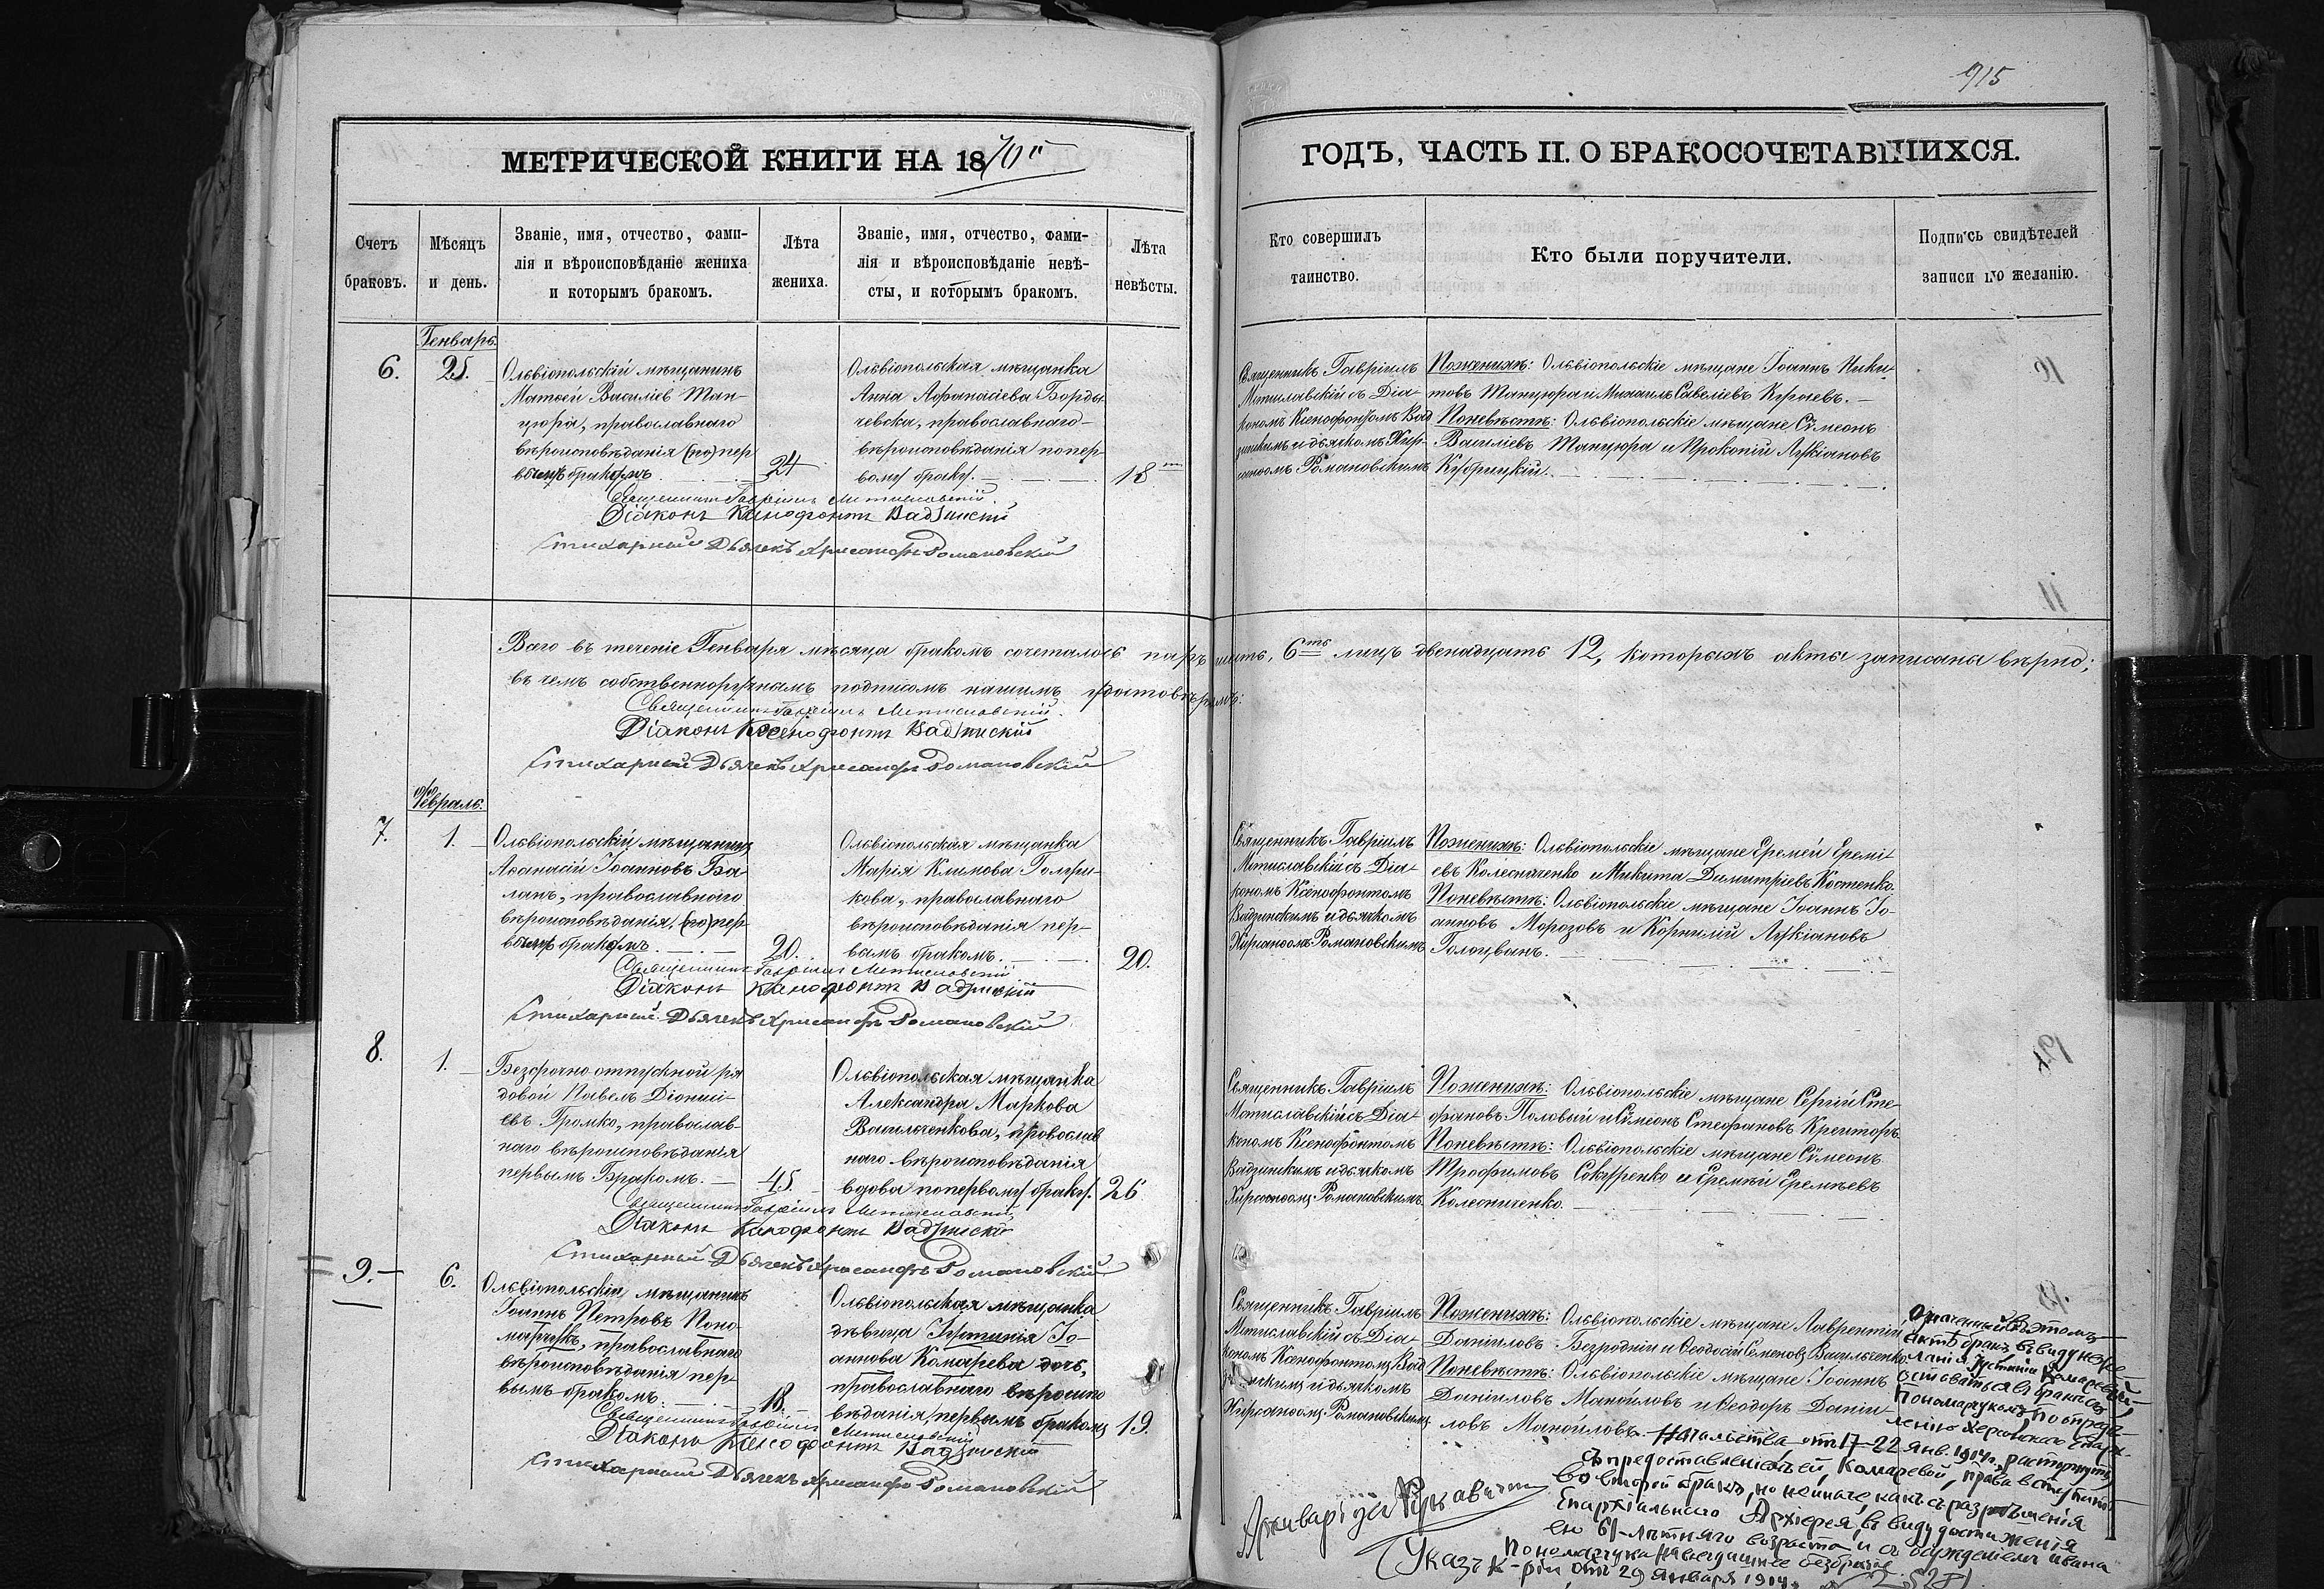 915
МЕТРИЧЕСКОЙ КНИГИ НА 1870й
ГОДЪ, ЧАСТЬ II. О БРАКОСОЧЕТАВШИХСЯ.
Счетъ
браковъ.
Мѣсяцъ
и день.
Званіе, имя, отчество, фами-
лія и вѣроисповѣданіе жениха
и которымъ бракомъ.
Лѣта
жениха.
Званіе, имя, отчество, фами-
лія и вѣроисповѣданіе невѣ-
сты, и которымъ бракомъ.
Лѣта
невѣсты.
Кто совершилъ
таинство.
Кто были поручители.
Подпись свидѣтелей
записи по желанію.
Генварь.
6.
25.
Ольвіопольскій мѣщанинъ
Матѳей Василіевъ Тан-
цюра, православнаго
вѣроисповѣданія (по) пер
вымъ бракомъ
24
Ольвіопольская мѣщанка
Анна Афанасіева Борды
чевска, православнаго
вѣроисповѣданія попер
вому браку.
18
Священникъ Гавріилъ
Мстиславскій съ Діа-
кономъ Ксенофонтомъ Вад
зинскимъ и дьячкомъ Хир-
санѳомъ Романовскимъ
Пожениху: Ольвіопольскіе мѣщане Іоаннъ Ники-
товъ Танцюра и Михаилъ Савеліевъ Кураевъ.
Поневѣстѣ: Ольвіопольскіе мѣщане Сѵмеонъ
Василіевъ Танцюра и Прокопій Лукіановъ
Кубрицкій.
Священникъ Гавріилъ Мстиславскій.
Діаконъ Ксенофонтъ Вадзинскій
Стихарный Дьячекъ Хрисанфъ Романовскій
Всего въ теченіе Генваря мѣсяца бракомъ сочеталось паръ шесть, 6ть лицъ двенадцать 12, которыхъ акты записаны вѣрно;
въ чемъ собственноручнымъ подписомъ нашимъ удостовѣряемъ:
Священникъ Гавріилъ Мстиславскій.
Діаконъ Ксенофонтъ Вадзинскій
Стихарный Дьячекъ Хрисанфъ Романовскій
Февраль.
7.
1.
Ольвіопольскій мѣщанинъ
Аѳанасій Іоанновъ Ба-
ланъ, православнаго
вѣроисповѣданія, (по) пер
вымъ бракомъ
20.
Ольвіопольская мѣщанка
Марія Климова Голри-
кова, православнаго
вѣроисповѣданія пер-
вымъ бракомъ.
20.
Священникъ Гавріилъ
Мстиславскій съ Діа-
кономъ Ксенофонтомъ
Вадзинскимъ и дьячкомъ
Хирсанѳомъ Романовскимъ
Пожениху: Ольвіопольскіе мѣщане Еремей Еремі-
евъ Колесниченко и Никита Димитріевъ Костенко.
Поневѣстѣ: Ольвіопольскіе мѣщане Іоаннъ Іо-
анновъ Морозовъ и Корнилій Лукіановъ
Голоцванъ.
Священникъ Гавріилъ Мстиславскій
Діаконъ Ксенофонтъ Вадзинскій
Стихарный Дьячекъ Хрисанфъ Романовскій
8.
1.
Безсрочно отпускной ря
довой Павелъ Діонисі-
евъ Громко, православ-
наго вѣроисповѣданія
первымъ Бракомъ.
45.
Ольвіопольская мѣщанка
Александра Маркова
Васильченкова, православ
наго вѣроисповѣданія
вдова попервому браку.
26
Священникъ Гавріилъ
Мстиславскій съ Діа-
кономъ Ксенофонтомъ
Вадзинскимъ и дьячкомъ
Хирсанѳомъ Романовскимъ
Пожениху: Ольвіопольскіе мѣщане Сергій Сте-
фановъ Половый и Сѵмеонъ Стефановъ Кременторъ
Поневѣстѣ: Ольвіопольскіе мѣщане Сѵмеонъ
Трофимовъ Сокуренко и Еремѣй Еремѣевъ
Колесниченко.
Священникъ Гавріилъ Мстиславскій
Діаконъ Ксенофонтъ Вадзинскій
Стихарный Дьячекъ Хрисанфъ Романовскій
9.
6.
Ольвіопольскій мѣщанинъ
Іоаннъ Петровъ Поно-
марчукъ, православнаго
вѣроисповѣданія пер-
вымъ бракомъ.
18.
Ольвіопольская мѣщанка
дѣвица Іустинія Іо-
аннова Комарева дочь,
православнаго вѣроиспо
вѣданія первымъ бракомъ
19.
Священникъ Гавріилъ
Мстиславскій съ Діа-
кономъ Ксенофонтомъ Вад
зинскимъ и дьячкомъ
Хирсанѳомъ Романовскимъ
Пожениху: Ольвіопольскіе мѣщане Лаврентій
Даніиловъ Безродній и Ѳеодосій Семеновъ Васильченко
Поневѣстѣ: Ольвіопольскіе мѣщане Іоаннъ
Даніиловъ Манойловъ и Ѳеодоръ Даніи-
ловъ Манойловъ.
Священникъ Гавріилъ Мстиславскій
Діаконъ Ксенофонтъ Вадзинскій
Стихарный Дьячекъ Хрисанфъ Романовскій
Означенный въ этомъ
актѣ бракъ, въ виду неже
ланія Іустиніи Комаревой
оставаться въ бракѣ съ
Пономарчукомъ, по опредѣ-
ленію Херсонскаго Епарх.
Начальства, отъ 17-22 янв. 1914 г., расторгнутъ
съ предоставленіемъ ей, Комаревой, права вступить
во второй бракъ, но не иначе, какъ съ разрѣшенія
Епархіальнаго Архіерея, въ виду достиженія
ею 61-лѣтняго возраста и съ осужденіемъ Ивана
Пономарчука на всегдашнее безбрачіе
Указъ К-ріи отъ 29 января 1914